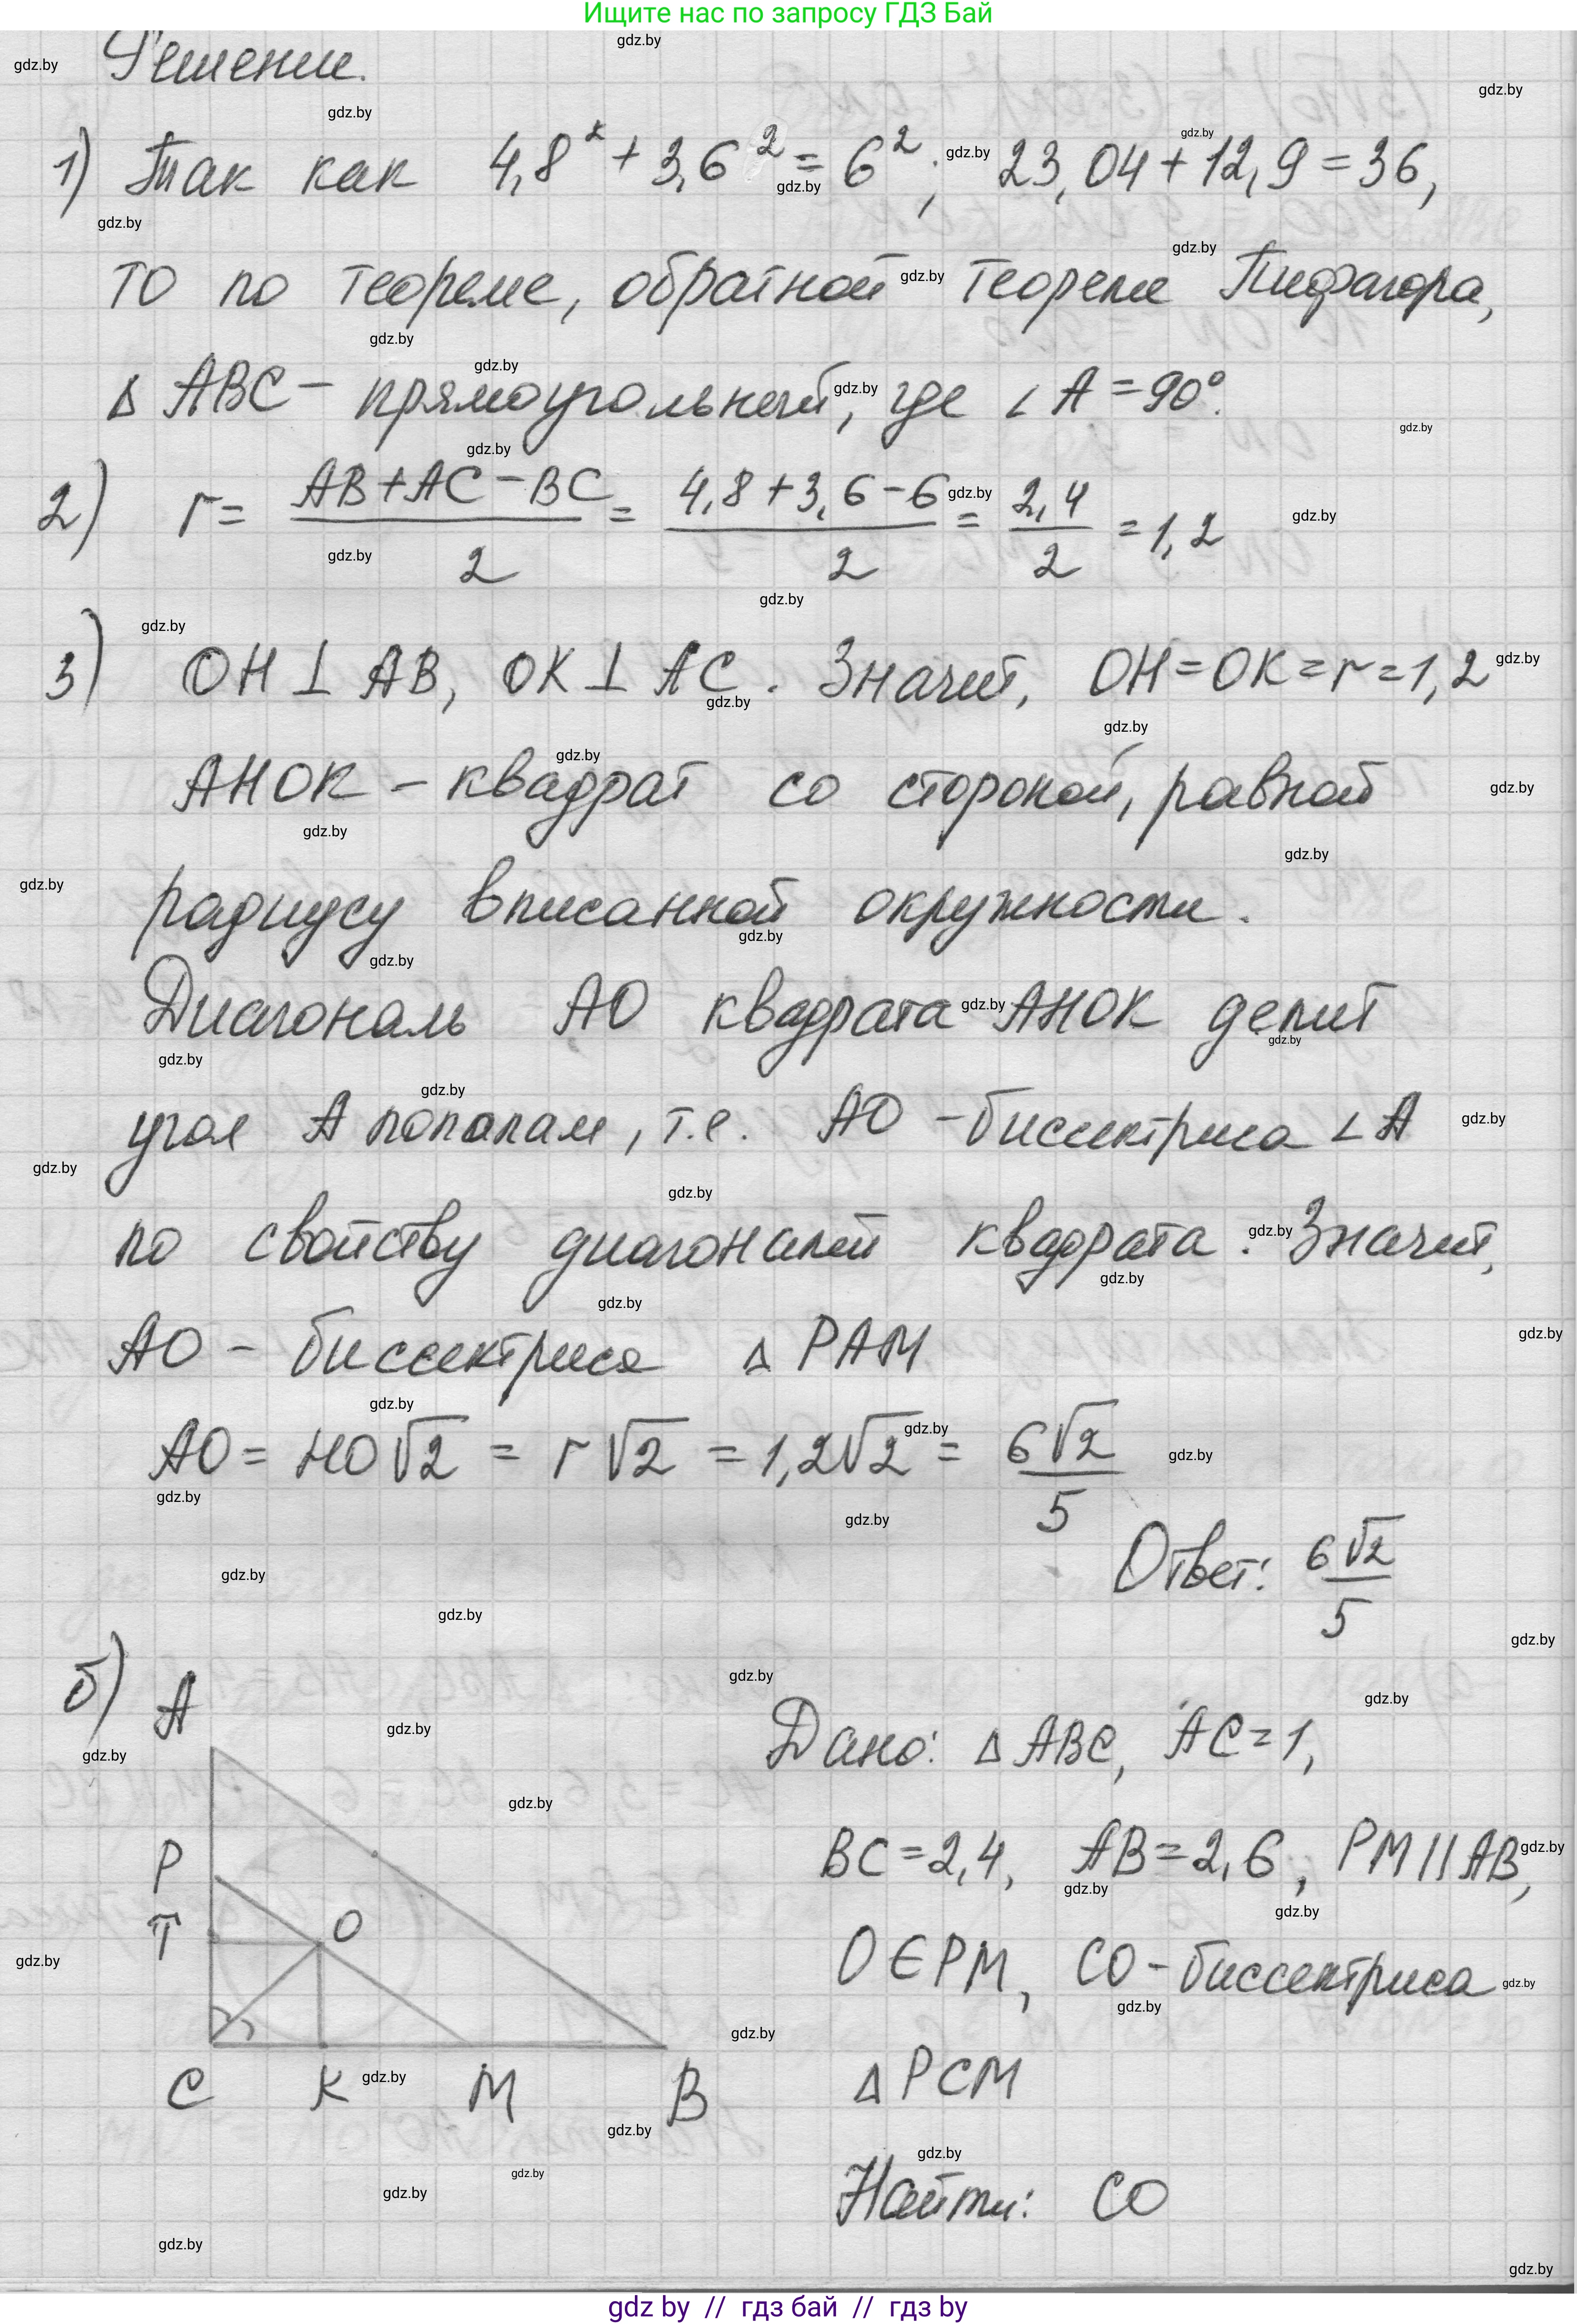 Ищите нас по запросу ГДЗ Бай
Решение.
1) Так как 4,8² + 3,6² = 6²; 23,04 + 12,9 = 36,
то по теореме, обратной теореме Пифагора,
Δ ABC – прямоугольный, где ∠A = 90°.
2) r = (AB + AC – BC)/2 = (4,8 + 3,6 – 6)/2 = 2,4/2 = 1,2
3) OH ⊥ AB, OK ⊥ AC. Значит, OH = OK = r = 1,2
AHOK – квадрат со стороной, равной
радиусу вписанной окружности.
Диагональ AO квадрата AHOK делит
угол A пополам, т.е. AO – биссектриса ∠A
по свойству диагоналей квадрата. Значит,
AO – биссектриса Δ PAM
AO = HO√2 = r√2 = 1,2√2 = 6√2/5
Ответ: 6√2/5
б)
A
P
T
O
C K M B
Дано: Δ ABC, AC = 1,
BC = 2,4, AB = 2,6, PM || AB,
O ∈ PM, CO – биссектриса
Δ PCM
Найти: CO
gdz by // гдз бай // гдз by